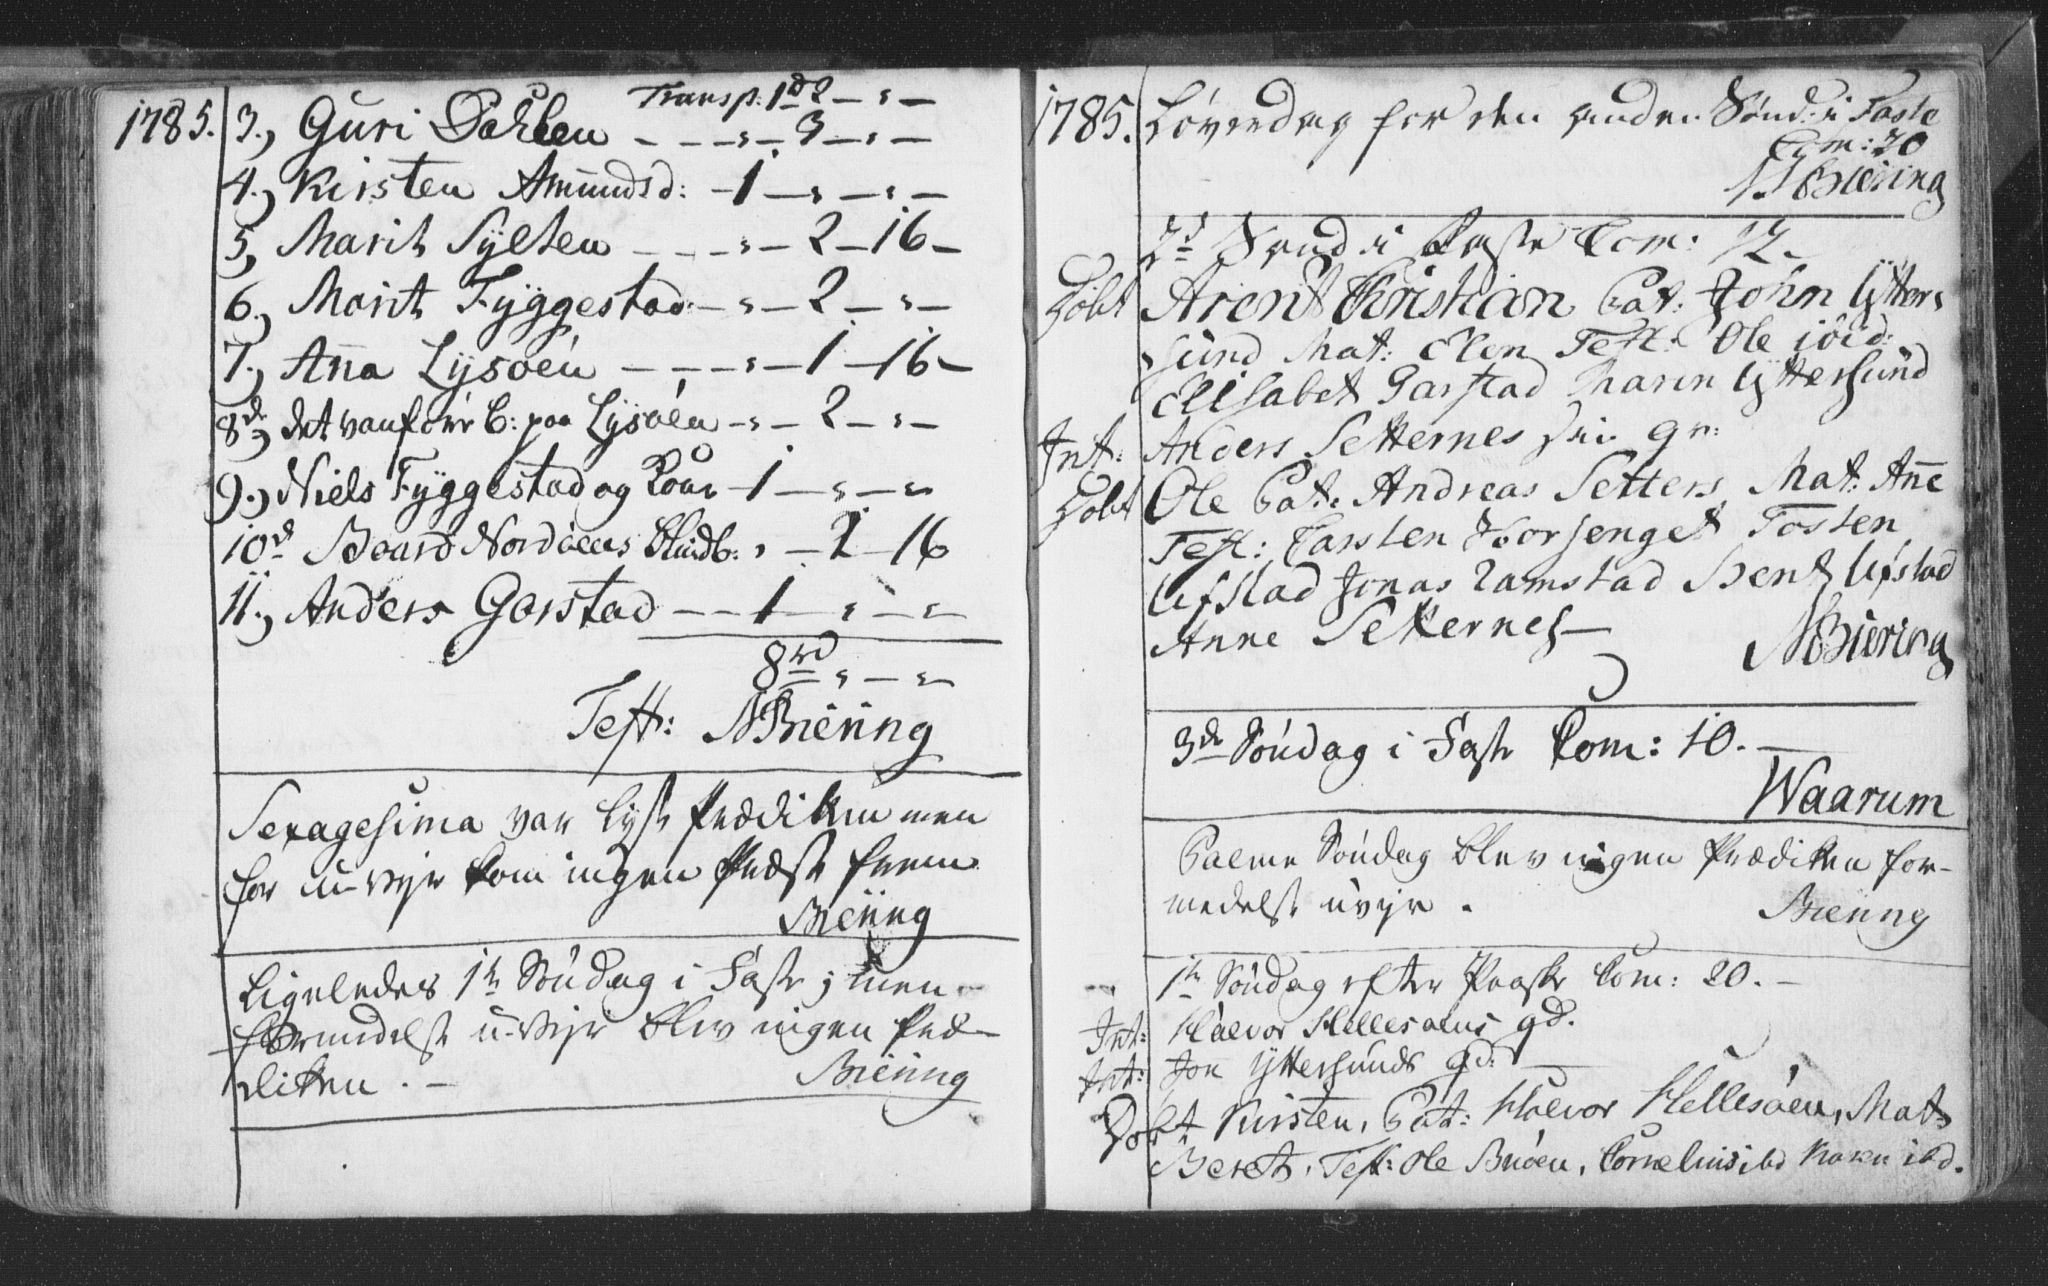 Transp: 1 rd 2 — " —
1785. 3., Guri Dahlen — — — " — 3 — " —
4., Kirsten Amundsd: — 1 — " — " —
5, Marit Sylten — — — " — 2 — 16 —
6., Marit Tyggestad — " — 2 — " —
7., Aña Lysöen — — — " — 1 — 16 —
8de, det vanföre b: paa Lysöen — " — 2 — " —
9., Niels Tyggestad og — 1 — " — "
10d Baard Nordöens blindb: " — 2 — 16
11., Anders Garstad — — 1 — " — "
8 rd " — " —
Test: NBiering
Sexagesima var lyst Prædiken men
for u-vejr kom ingen Præst frem
Biering
Ligeledes 1te Söndag i Faste; men
formedelst u-vejr blev ingen Præ-
diken. —
Biering
1785. Löverdag for den anden Sönd: i Faste
Com: 20
NBiering
2d Sönd i Faste Com: 12.
Döbt Arent Christian Pat: John Ytter-
sund Mat: Elen Test: Ole ibid:
Elisabet Garstad Maren Yttersund
Int: Anders Setternes gr:
Döbt Ole Pat: Andreas Setters Mat: Añe
Test: Carsten Horsenget Tosten
Ufstad Jonas Ramstad Bent Ufstad
Anne Setternes —
NBiering
3de Söndag i Faste Com: 10. —
Waarum
Palme Söndag blev ingen Prædiken for-
medelst uvejr.
Biering
1te Söndag efter Paaske Com: 20. —
Int: Halvor Hellesöens qd.
Int: Jon Yttersunds qd: —
Döbt Kirsten, Pat: Halvor Hellesöen, Mat:
Beret, Test: Ole Buöen, Cornelius ibd Karen ibd.